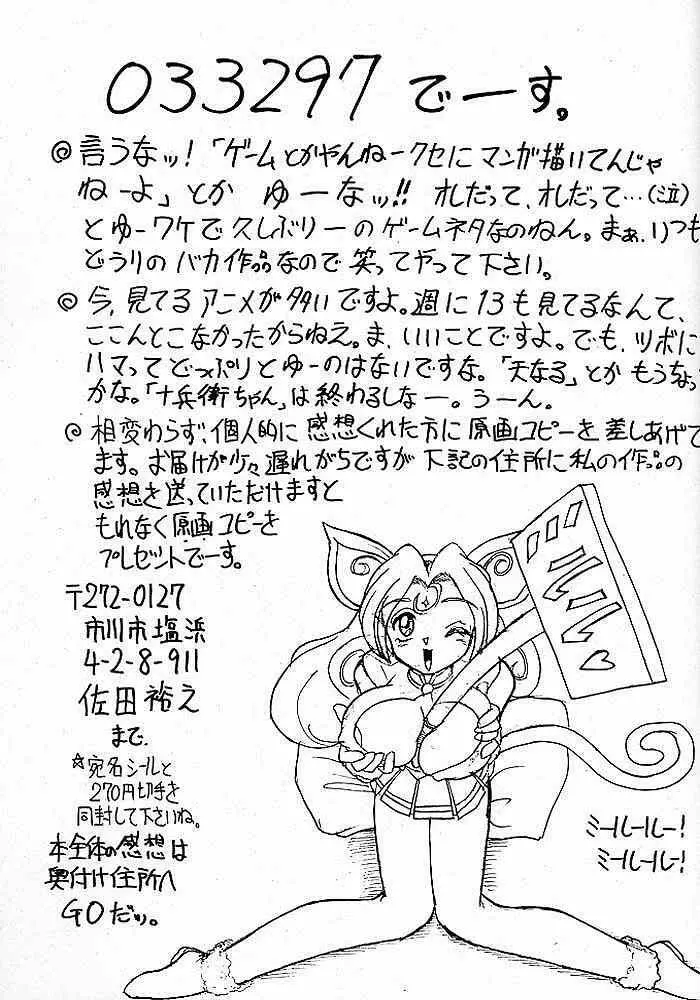 033297 でーす。
◎言うなッ！「ゲームとかやんねークセにマンガ描いてんじゃ
ねーよ」とか ゆーなッ!! オレだって、オレだって…(泣)
とゆーワケで久しぶりーのゲームネタなのねん。まぁ、いつも
どうりのバカ作品なので笑ってやって下さい。
◎今、見てるアニメが多いですよ。週に13も見てるなんて、
ここんとこなかったからねえ。ま、いいことですよ。でも、ツボに
ハマってどっぷりとゆーのはないですな。「天なる」とかもうな
かな。「十兵衛ちゃん」は終わるしなー。うーん。
◎相変わらず、個人的に感想くれた方に原画コピーを差しあげて
ます。お届けが少々遅れがちですが下記の住所に私の作品の
感想を送っていただけますと
もれなく原画コピーを
プレゼントでーす。
〒272-0127
市川市塩浜
4-2-8-911
佐田裕之
まで、
☆宛名シールと
270円切手を
同封して下さいね。
本全体の感想は
奥付け住所へ
GOだッ。
ドルルル♡
ミールールー！
ミールルー！